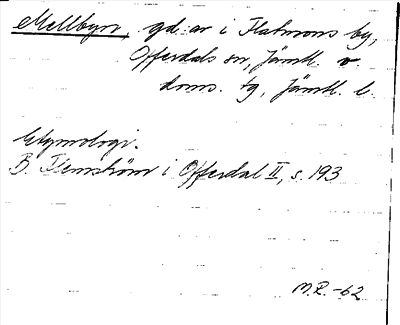 Mellbyn, gd:ar i Flatmons by,
Offerdals sn, Jämtl. v.
doms. tg, Jämtl. l.
Etymologi.
B. Flemström i Offerdal II, s. 193
M.R.-62